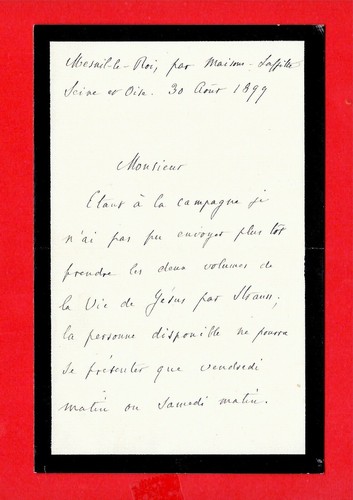 Mesnil-le-Roi, par Maisons-Laffitte
Seine et Oise. 30 Août 1899
Monsieur
Etant à la campagne je
n'ai pas pu envoyer plus tôt
prendre les deux volumes de
la Vie de Jésus par Strauss;
la personne disponible ne pourra
se présenter que vendredi
matin ou samedi matin.